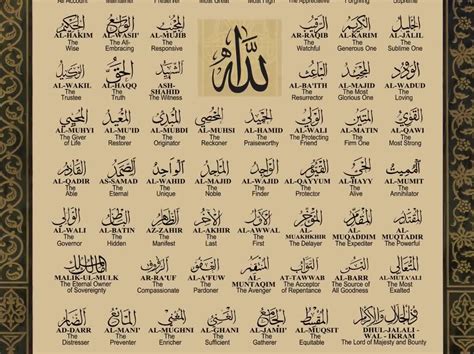 الجليل الكريم الرقيب المجيب الواسع الحكيم
الله
AL-HAKIM AL-WASI' AL-MUJIB AR-RAQIB AL-KARIM AL-JALIL
The Wise The All-Embracing The Responsive The Watchful The Generous One The Sublime One
الودود المجيد الباعث الشهيد الحق الوكيل
AL-WAKIL AL-HAQQ ASH-SHAHID AL-BA'ITH AL-MAJID AL-WADUD
The Trustee The Truth The Witness The Resurrector The Most Glorious One The Loving
القوي المتين الولي الحميد المحصي المبدئ المعيد المحيي
AL-MUHYI AL-MU'ID AL-MUBDI AL-MUHSI AL-HAMID AL-WALI AL-MATIN AL-QAWI
The Giver of Life The Restorer The Originator The Reckoner The Praiseworthy The Protecting Friend The Firm One The Strong
المميت الحي القيوم الواجد الماجد الواحد الصمد القادر
AL-QADIR AS-SAMAD AL-WAHID AL-MAJID AL-WAJID AL-QAYYUM AL-HAYY AL-MUMIT
The Able The Eternal The Unique The Noble The Finder The Self-Subsisting The Alive The
المقتدر المقدم المؤخر الأول الآخر الظاهر الباطن الوالي
AL-WALI AL-BATIN AZ-ZAHIR AL-AKHIR AL-AWWAL AL-MUAKHKHIR AL-MUQADDIM AL-MUQTADIR
The Governor The Hidden The Manifest The Last The First The Delayer The Expediter The Powerful
المتعالي البر التواب المنتقم العفو الرؤوف مالك الملك
MALIK-UL-MULK AR-RA'UF AL-'AFUW AL-MUNTAQIM AT-TAWWAB AL-BARR AL-MUTA'ALI
The Eternal Owner of Sovereignty The Compassionate The Pardoner The Avenger The Acceptor of Repentance The Source of All Goodness The Most Exalted
ذو الجلال والإكرام المقسط الجامع الغني المغني المانع الضار
AD-DARR AL-MANI' AL-MUGHNI AL-GHANI AL-JAMII' AL-MUQSIT DHUL-JALALI-WAL-IKRAM
The Distresser The Preventer The Enricher The Sufficient The Gatherer The Equitable The Lord of Majesty and Bounty